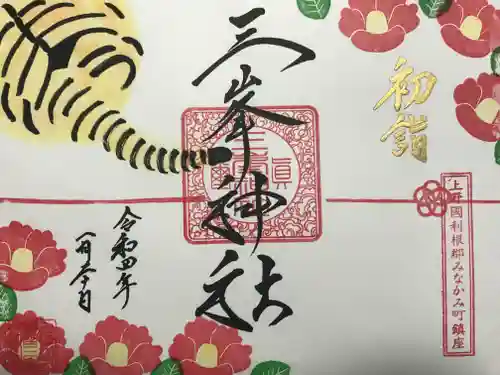 初詣
上野國利根郡みなかみ町鎮座
三峯神社
令和四年
一月